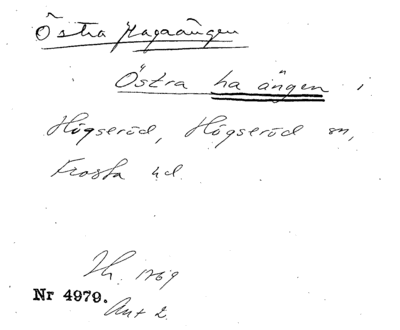 Östra Hagaängen
Östra ha ängen i
Högseröd, Högseröd sn,
Frosta hd
1769
Nr 4979.
Ant 2